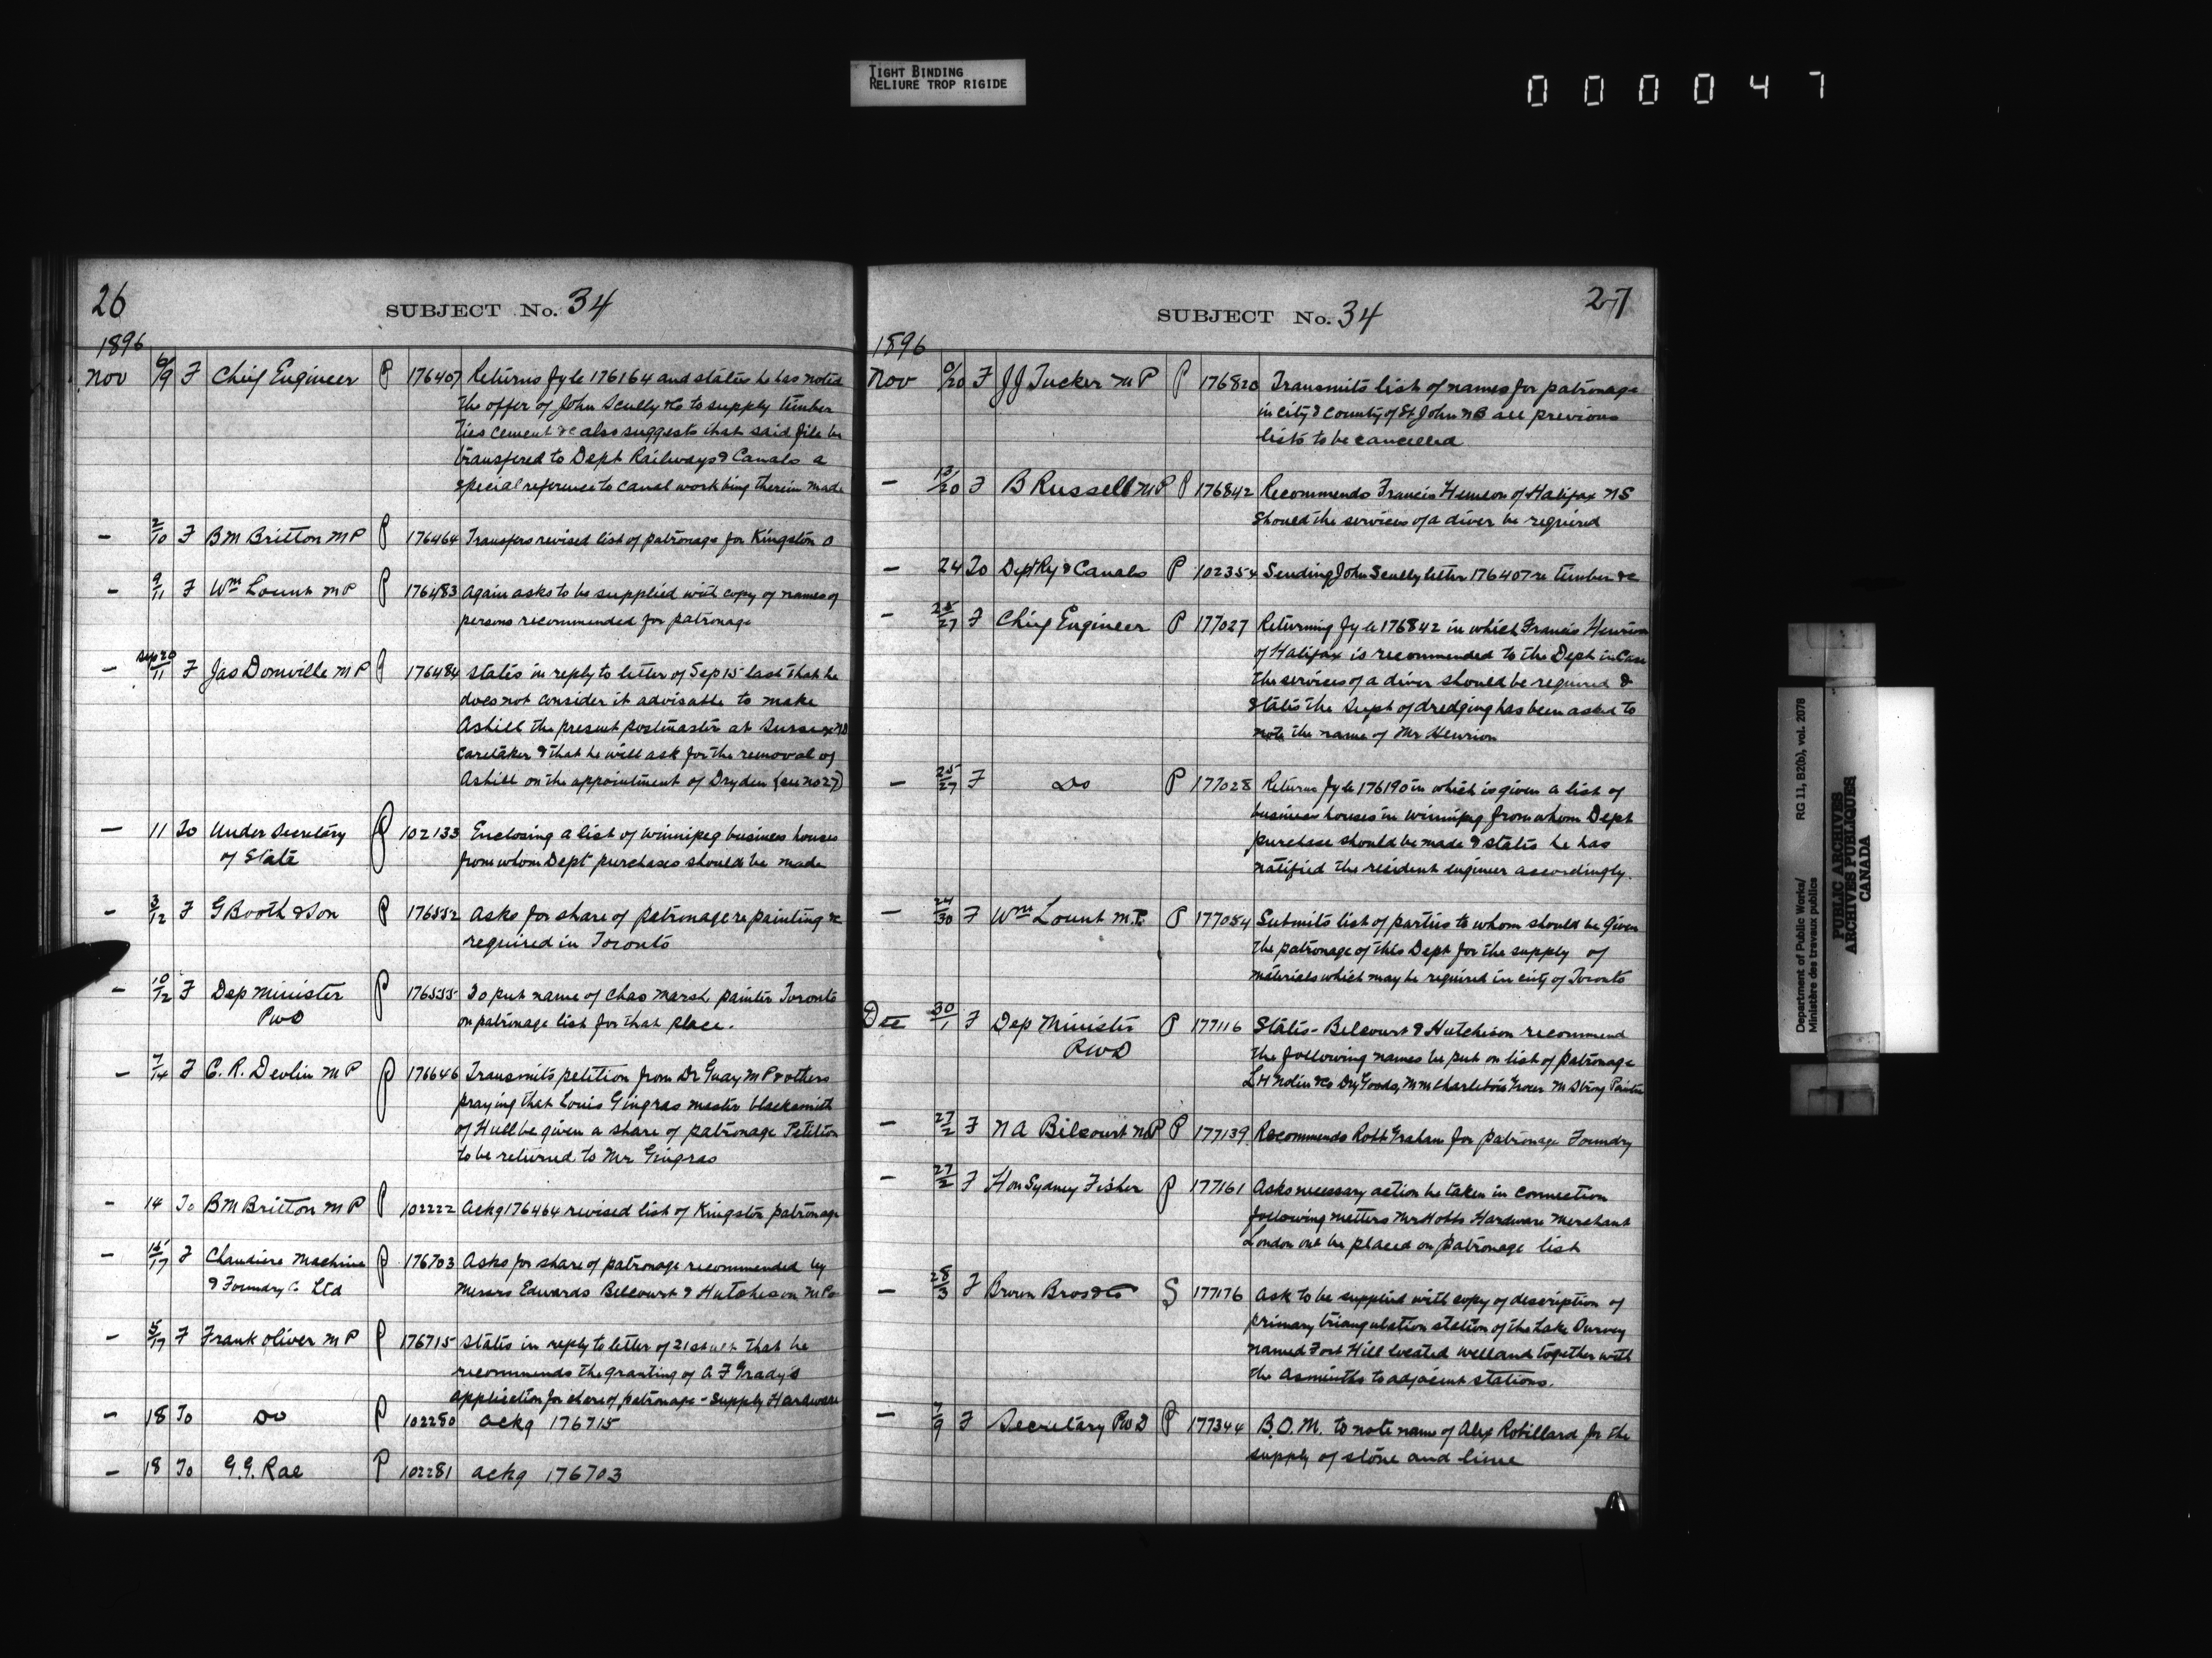 TIGHT BINDING
RELIURE TROP RIGIDE
000047
26
SUBJECT No. 34
1896
Nov 6/9 F Chief Engineer P 176407 Returns fyle 176164 and states he has noted
the offer of John Scully &c to supply timber
ties cement &c also suggests that said file be
transfered to Dept Railways & Canals a
special reference to canal work being therein made
- 2/10 F BM Britton MP P 176464 Transfers revised list of patronage for Kingston O
- 9/11 F Wm Lount MP P 176483 again asks to be supplied with copy of names of
persons recommended for patronage
- Sep 20/11 F Jas Domville MP P 176484 states in reply to letter of Sep 15 last that he
does not consider it advisable to make
Ashill the present postmaster at Sussex NB
caretaker & that he will ask for the removal of
Ashill on the appointment of Dryden (see no 27)
- 11 To Under Secretary P 102133 Enclosing a list of Winnipeg business houses
of State from whom Dept purchases should be made
- 3/12 F G Booth & Son P 176552 Asks for share of patronage re painting &c
required in Toronto
- 10/12 F Dep Minister P 176555 To put name of Chas Marsh, painter Toronto
PWD on patronage list for that place.
- 7/14 F C. R. Devlin MP P 176646 Transmits petition from Dr Guay MP & others
praying that Louis Gingras master blacksmith
of Hull be given a share of patronage Petition
to be returned to Mr Gingras
- 14 To BM Britton MP P 102222 Ackg 176464 revised list of Kingston patronage
- 16/17 F Chaudiere Machine P 176703 Asks for share of patronage recommended by
& Foundry Co Ltd Messrs Edwards Belcourt & Hutcheson MPs
- 5/17 F Frank Oliver MP P 176715 states in reply to letter of 21st ult that he
recommends the granting of A F Grady's
application for share of patronage - Supply Hardware
- 18 To Do P 102280 ackg 176715
- 18 To G.G. Rae P 102281 ackg 176703
27
SUBJECT No. 34
1896
Nov /20 F JJ Tucker MP P 176820 Transmits list of names for patronage
in city & county of St John NB all previous
lists to be cancelled
- 13/20 F B Russell MP P 176842 Recommends Francis Henrion of Halifax NS
should the services of a diver be required
- 24 To Dept Ry & Canals P 102354 Sending John Scully letter 176407 re timber &c
- 25/27 F Chief Engineer P 177027 Returning fyle 176842 in which Francis Henrion
of Halifax is recommended to the Dept in case
the services of a diver should be required &
states the Supt of dredging has been asked to
note the name of Mr Henrion
- 25/27 F Do P 177028 Returns fyle 176190 in which is given a list of
business houses in Winnipeg from whom Dept
purchase should be made & states he has
notified the resident engineer accordingly.
- 24/30 F Wm Lount M.P. P 177054 Submits list of parties to whom should be given
the patronage of this Dept for the supply of
materials which may be required in city of Toronto
Dec 30/1 F Dep Minister P 177116 States - Belcourt & Hutcheson recommend
PWD the following names be put on list of patronage
L H Nolin & Co Dry Goods, M M Charlebois Grocer M Strong Painter
- 27/2 F N A Belcourt MP P 177139 Recommends Robt Graham for patronage Foundry
- 27/2 F Hon Sydney Fisher P 177161 Asks necessary action be taken in connection
following matters Mr Hobbs Hardware Merchant
London ont be placed on patronage list
- 28/3 F Brown Bros & Co S 177176 Ask to be supplied with copy of description of
primary triangulation station of the Lake Survey
named Fort Hill located Welland together with
the asmiuths to adjacent stations.
- 7/9 F Secretary PWD P 177344 B.O.M. to note name of Alex Robillard for the
supply of stone and lime
Department of Public Works/
Ministère des travaux publics
RG 11, B2(b), vol. 2078
PUBLIC ARCHIVES
ARCHIVES PUBLIQUES
CANADA